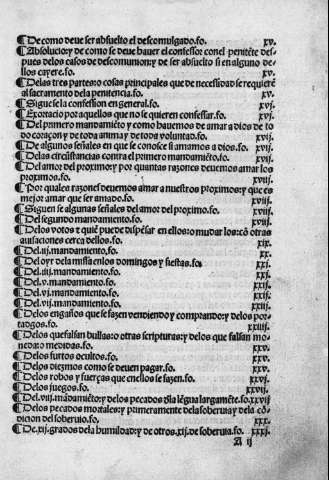 ¶ De como deve ser absuelto el descomulgado.fo. xv.
¶ Absolucion: y de como se deve haver el confessor conel penitẽte des
pues delos casos de descomunion: y de ser absuelto si en alguno de
llos cayere.fo. xv.
¶ Delas tres partes: o cosas principales que de necessidad se requierẽ
al sacramento dela penitencia.fo. xv.
¶ Siguese la confession en general.fo. xvj.
¶ Exortacio por aquellos que no se quieren confessar.fo. xvj.
¶ Del primero mandamiẽto y como havemos de amar a dios de to
do coraçon y de toda anima y de toda voluntad.fo. xvj.
¶ De algunos señales en que se conosce si amamos a dios.fo. xvij.
¶ Delas circũstancias contra el primero mandamiẽto.fo. xvij.
¶ Del amor del proximo: y por quantas razones devemos amar los
proximos.fo. xvij.
¶ Por quales razones devemos amar a nuestros proximos: y que es
mejor amar que ser amado.fo. xviij.
¶ Siguen se algunas señales del amor del proximo.fo. xviij.
¶ Del segundo mandamiento.fo. xviij.
¶ Delos votos & quiẽ puede dispẽsar en ellos: o mudar los: cõ otras
avisaciones cerca dellos.fo. xix.
¶ Del.iij.mandamiento.fo. xx.
¶ Del oyr dela missa enlos domingos y fiestas.fo. xxj.
¶ Del.iiij.mandamiento.fo. xxj.
¶ Del.v.mandamiento.fo. xxij.
¶ Del.vj.mandamiento.fo. xxij.
¶ Del.vij.mandamiento.fo. xxij.
¶ Delos engaños que se fazen vendiendo y comprando: y delos por
tadgos.fo. xxiiij.
¶ Delos que falsan bullas: o otras scripturas: y delos que falsan mo
neda: o medidas.fo. xxv.
¶ Delos furtos ocultos.fo. xxv.
¶ Delos diezmos como se deven pagar.fo. xxv.
¶ Delos robos y fuerças que enellos se fazen.fo. xxvj.
¶ Delos juegos.fo. xxvij.
¶ Del.viij.mãdamiẽto: y delos pecados dla lẽgua largamẽte.fo.xxvij
¶ Delos pecados mortales: y primeramente dela sobervia y dela cõ
dicion del sobervio.fo. xxx.
¶ De.xij.grados dela humildad: y de otros.xij.de sobervia.fo. xxxj.
A ij